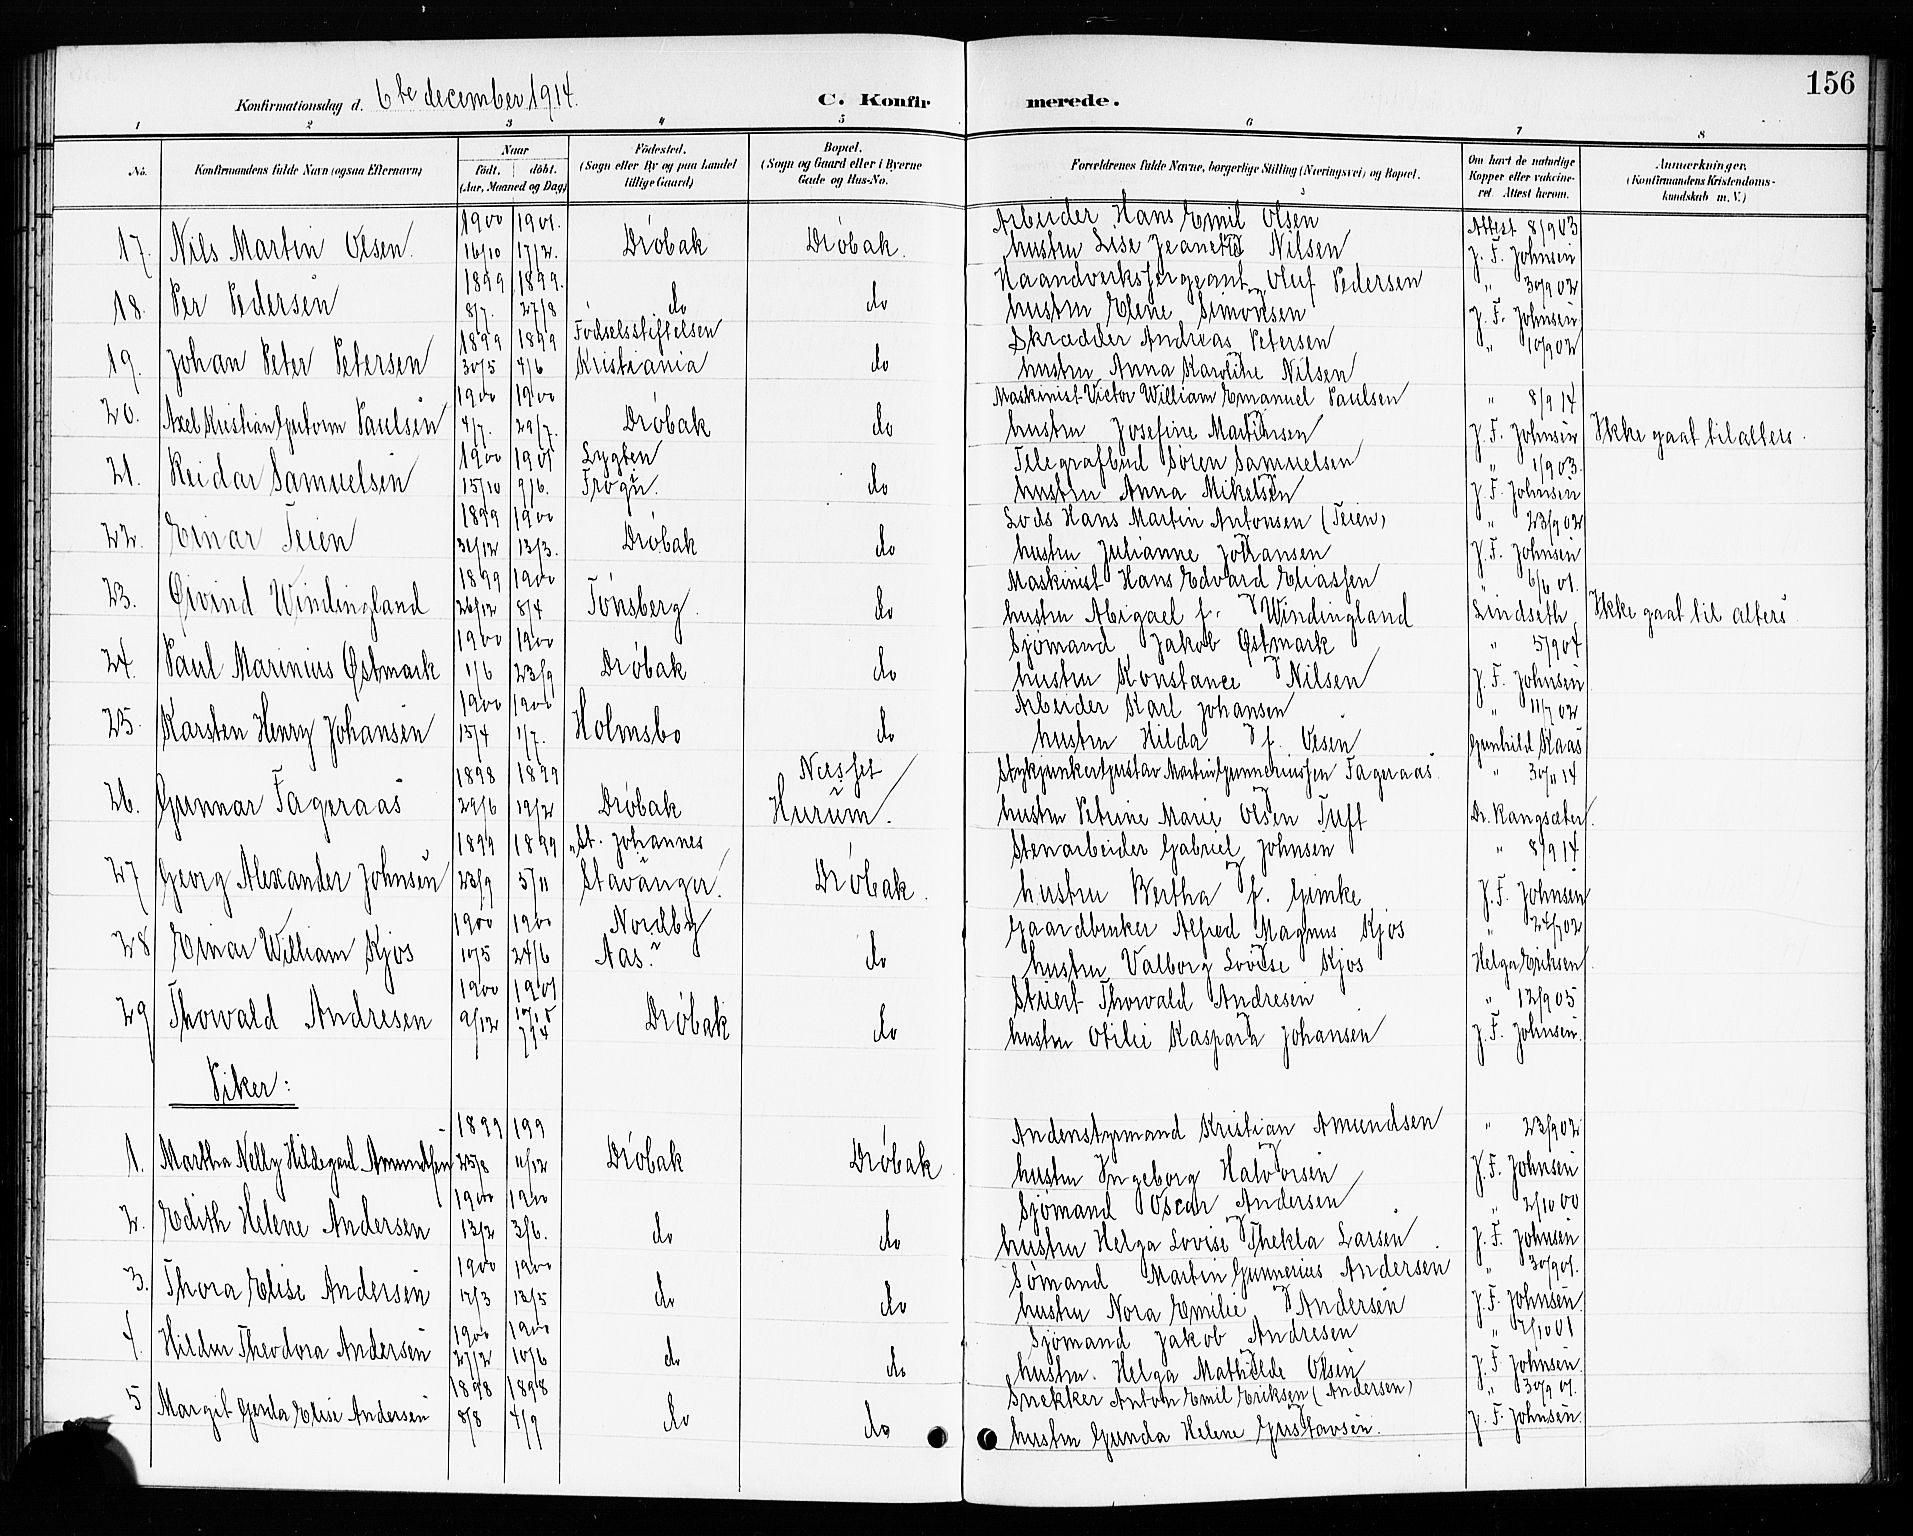 156
Konfirmationsdag d. 6te december 1914.
C. Konfirmerede.
1 2 3 4 5 6 7 8
No. Konfirmandens fulde Navn (ogsaa Efternavn) Naar født. døbt. (Aar, Maaned og Dag) Fødested. (Sogn eller By og paa Landet tillige Gaard) Bopæl. (Sogn og Gaard eller i Byerne Gade og Hus-No. Forældrenes fulde Navne, borgerlige Stilling (Næringsvei) og Bopæl. Om havt de naturlige Kopper eller vaccineret. Attest herom. Anmærkninger. (Konfirmandens Kristendomskundskab m. V.)
1900 1901. Arbeider Hans Emil Olsen Attest 8/9 03
17. Nils Martin Olsen. 16/10 17/2. Drøbak Drøbak. hustru Lise Jeanette Nilsen J. F. Johnsen
1899 1899. Haandverkssergeant Oluf Pedersen " 30/9 02
18. Per Pedersen 8/7. 27/8 do do hustru Elene Simonsen J. F. Johnsen
1899 1899 Fødselsstiftelsen Skrædder Andreas Petersen " 10/9 02
19. Johan Peter Petersen 30/5 4/6 Kristiania do hustru Anna Karoline Nilsen
1900 1900 Maskinist Victor William Emanuel Paulsen " 8/9 14
20. Axel Kristian Guttorm Paulsen 4/7. 29/7. Drøbak do hustru Josefine Martinsen J. F. Johnsen Ikke gaat til alters.
1900 1901 Lygten Telegrafbud Søren Samuelsen " 1/9 03.
21. Reidar Samuelsen 15/10 9/6. Frogn. do hustru Anna Mikelsen J. F. Johnsen
1899 1900 Lods Hans Martin Antonsen (Teien) " 23/9 02
22. Einar Teien 31/12 13/3. Drøbak do hustru Julianne Johansen J. F. Johnsen
1899 1900 Maskinist Hans Edvard Eliassen " 6/6 01.
23. Øivind Windingland 26/12 8/4 Tønsberg. do hustru Abigael f. Windingland Lindseth Ikke gaat til alters
1900 1900 Sjømand Jakob Østmark " 5/9 04
24. Paul Marinius Østmark 1/6 23/9 Drøbak do hustru Konstance Nilsen J. F. Johnsen
1900 1900 Arbeider Karl Johansen " 11/7 02
25. Karsten Henry Johansen 15/4 1/7. Holmsbo do hustru Hilda f. Olsen Gunhild Kaas
1898 1899 Næsset Stykjunker Gustav Martin Gunneriussen Fageraas. " 30/11 14
26. Gunnar Fageraas 29/6 19/2 Drøbak Hurum. hustru Petrine Marie Olsen Tuft Dr. Kangsæter.
1899 1899 "St. Johannes Stenarbeider Gabriel Johnsen " 8/9 14
27 Georg Alexander Johnsen 23/9 5/11 Stavanger. Drøbak. hustru Bertha f. Gimke J. F. Johnsen
1900 1900 Nordby Gaardbruker Alfred Magnus Kjos " 24/7 02
28 Einar William Kjos 10/5 24/6 Aas. do hustru Valborg Lovise Kjos Helga Eriksen
1900 1901 Stuert Thorvald Andresen " 12/9 05
29 Thorvald Andresen 9/12 7/4 Drøbak do hustru Otilie Kaspara Johansen J. F. Johnsen.
Piker:
1899 199 Andenstyrmand Kristian Amundsen " 23/9 02
1. Martha Nelly Hildegard Amundsen 25/8 11/12 Drøbak Drøbak hustru Ingeborg Halvorsen J. F. Johnsen
1900 1900 Sjømand Oscar Andersen " 2/10 00
2. Edith Helene Andersen 13/2 3/6. do do hustru Helga Lovise Thekla Larsen J. F. Johnsen
1900 1900 Sømand Martin Gunnerius Andersen " 30/9 01.
3. Thora Elise Andersen 17/3 13/5 do do hustru Nora Emilie Andersen J. F. Johnsen
1900 1900 Sjømand Jakob Andresen " 2/10 01
4. Hildur Theodora Andersen 27/2 10/6 do do hustru. Helga Mathilde Olsen J. F. Johnsen.
1898 1898 Snekker Anton Emil Eriksen (Andersen) " 30/9 01.
5 Margit Gerda Elise Andersen 8/8 4/9 do do hustru Gunda Helene Gustavsen. J. F. Johnsen.